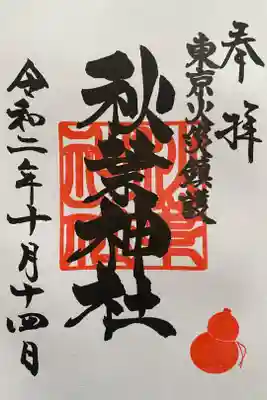 奉拝
東京火伐鎮護
秋葉神社
令和二年十月十四日